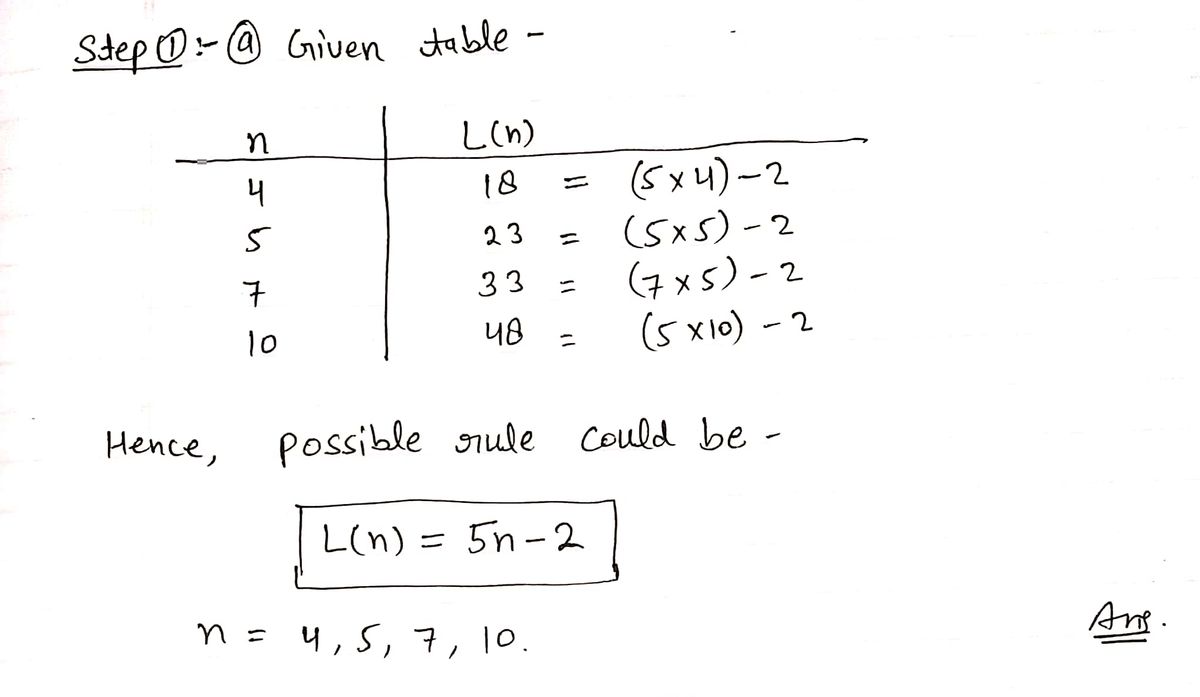 Step ① :- ⓐ Given table -
n L(n)
4 18 = (5 x 4) - 2
5 23 = (5 x 5) - 2
7 33 = (7 x 5) - 2
10 48 = (5 x 10) - 2
Hence, possible rule could be -
L(n) = 5n - 2
n = 4, 5, 7, 10.
Ans.